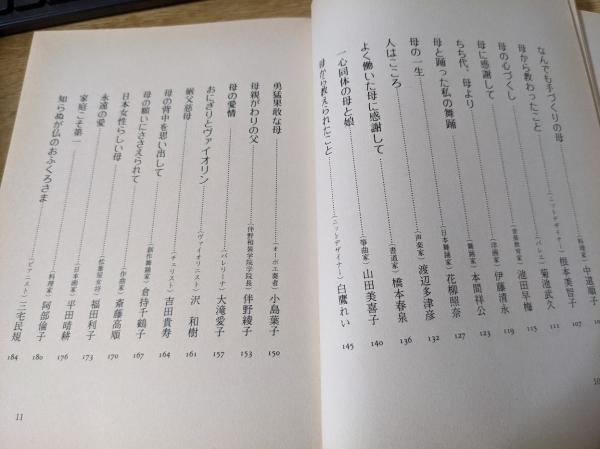 なんでも手づくりの母……(料理家)中道順子 107
母から教わったこと……(ニットデザイナー)根本美智子 111
母の心づくし……(バレエ)菊池武久 115
母に感謝して……(音楽教育家)池田早梅 119
ちち代、母より……(洋画家)伊藤清永 123
母と踊った私の舞踊……(舞踊家)本間祥公 127
母の一生……(日本舞踊家)花柳照奈 132
人はこころ……(声楽家)渡辺多津彦 136
よく働いた母に感謝して……(書道家)橋本春泉 140
一心同体の母と娘……(箏曲家)山田美喜子 145
母から教えられたこと……(ニットデザイナー)白鷹れい
勇猛果敢な母……(オーボエ奏者)小島葉子 150
母親がわりの父……(伴野和裁学院学院長)伴野綾子 153
母の愛情……(バレリーナ)大滝愛子 157
おにぎりとヴァイオリン……(ヴァイオリニスト)沢 和樹 161
厳父慈母……(チェリスト)吉田貴寿 164
母の背中を思い出して……(創作舞踊家)倉持千鶴子 167
母の願いにささえられて……(作曲家)斎藤高順 170
日本女性らしい母……福田利子 173
永遠の愛……(日本画家)平田晴耕 176
家庭こそ第一……(料理家)阿部倫子 180
知らぬが仏のおふくろさま……(ピアニスト)三宅民規 184
11